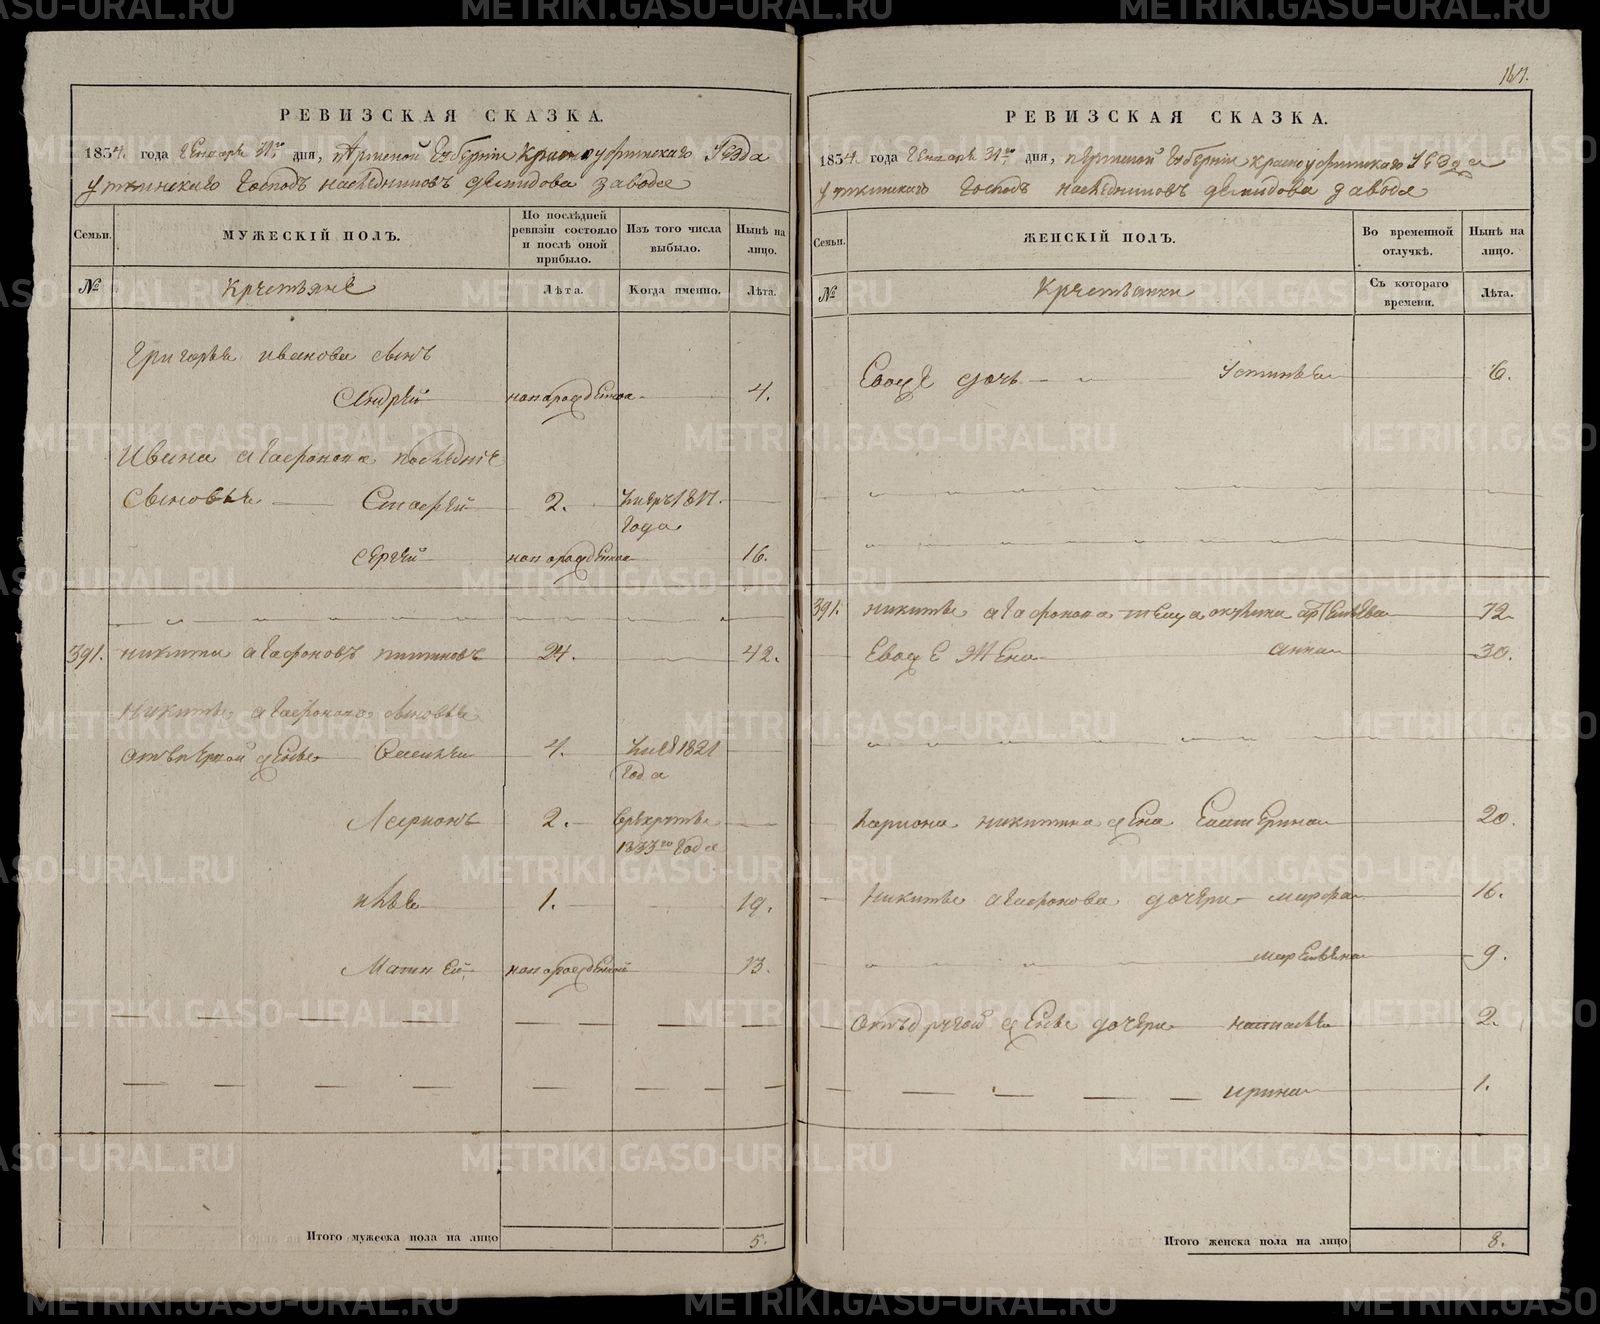 РЕВИЗСКАЯ СКАЗКА.
1834. года Генваря 31го дня, Пермской Губернiи Красноуфимского Уезда
Уткинского Господъ наследниковъ демидова завода
Семьи.
МУЖЕСКIЙ ПОЛЪ.
По послѣдней ревизiи состояло и послѣ оной прибыло.
Изъ того числа выбыло.
Нынѣ на лицо.
№
Крестьяне
Лѣта.
Когда именно.
Лѣта.
Григорья иванова сынъ
Андрей новорожденной 4.
Ивана агафонова последнiе
сыновья Старшей 2. 
года
сергей новорожденной 16.
391. никита агафоновъ 24. 42.
Никиты агафонова сыновья
отъ первой жены 4. 1821
года
Ларионъ 2. в рекруты
1833го года
илья 1. 19.
новорожденной 13.
Итого мужеска пола на лицо 5.
167.
РЕВИЗСКАЯ СКАЗКА.
1834. года Генваря 31го дня, Пермской Губернiи Красноуфимского Уезда
Уткинского Господъ наследниковъ демидова завода
Семьи.
ЖЕНСКIЙ ПОЛЪ.
Во временной отлучкѣ.
Нынѣ на лицо.
№
Крестьянки
Съ котораго времени.
Лѣта.
Евоже дочь Устинья 6.
391. никиты агафонова теща акулина 72
Евоже жена анна 30.
Лариона никитина жена Екатерина 20.
Никиты агафонова дочери марфа 16.
9.
отъ другой жены дочери наталья 2.
ирина 1.
Итого женска пола на лицо 8.
METRIKI.GASO-URAL.RU